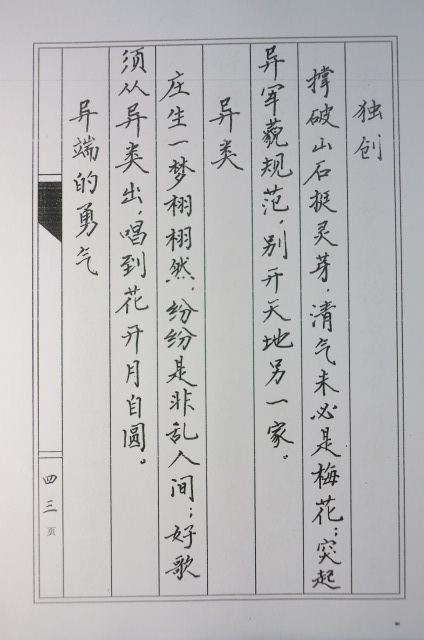 独创
撑破山石挺灵芽，清气未必是梅花；突起
异军藐规范，别开天地另一家。
异类
庄生一梦栩栩然，纷纷是非乱人间；好歌
须从异类出，唱到花开月自圆。
异端的勇气
四三页